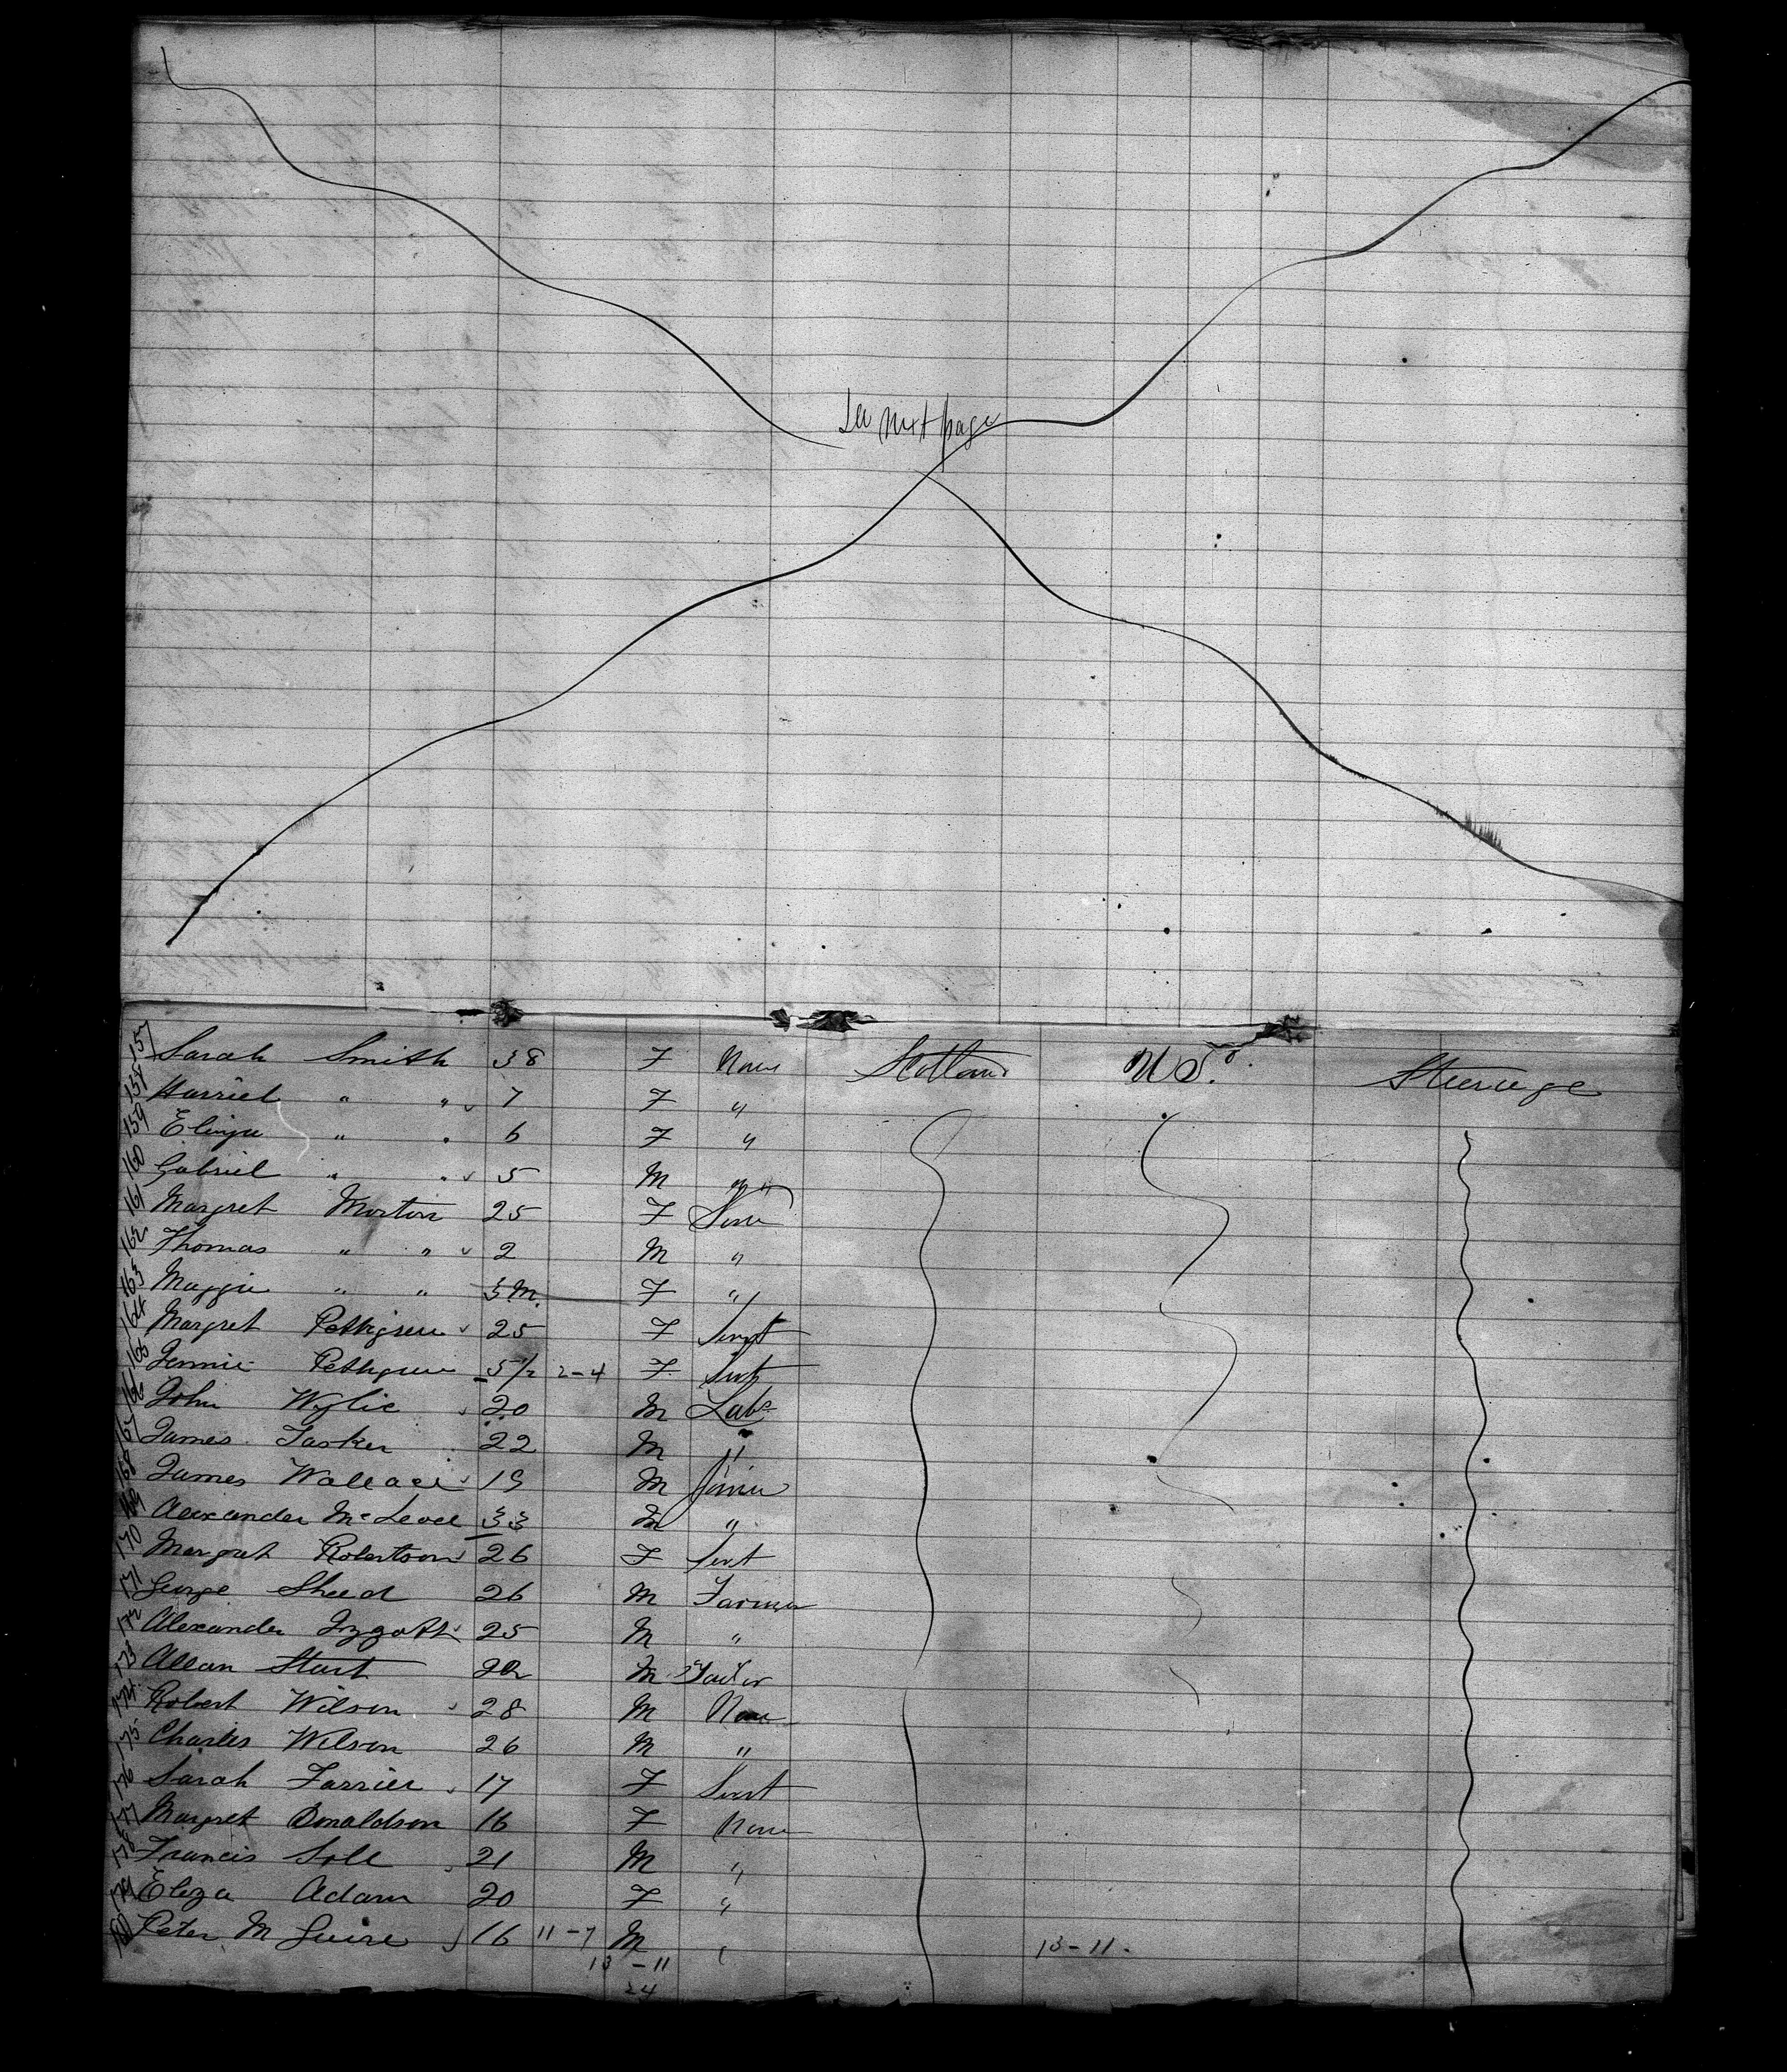 See next page
157 Sarah Smith 38 F None Scotland U S. Steerage
158 Harriet " " 7 F "
159 " " 6 F "
160 Gabriel " " 5 M " "
161 Margret Morton 25 F
162 Thomas " " 2 M "
163 Maggie " " 3 M. F "
164 Margret Pettigrew 25 F Servt
165 Jennie Pettigrew 5 1/2 2-4 F Servt
166 John Wylie 20 M Labr
167 James Tasker 22 M "
168 James Wallace 19 M
169 Alexander 33 M "
170 Margret Robertson 26 F Servt
171 George Sheed 26 M Farmer
172 Alexander 25 M "
173 Allan Start 22 M Tailor
174 Robert Wilson 28 M None
175 Charles Wilson 26 M "
176 Sarah Farrier 17 F Servt
177 Margret Donaldson 16 F None
178 Francis 21 M "
179 Eliza Adam 20 F "
180 Peter M Guire 16 11-7 M " 13-11.
13-11
24